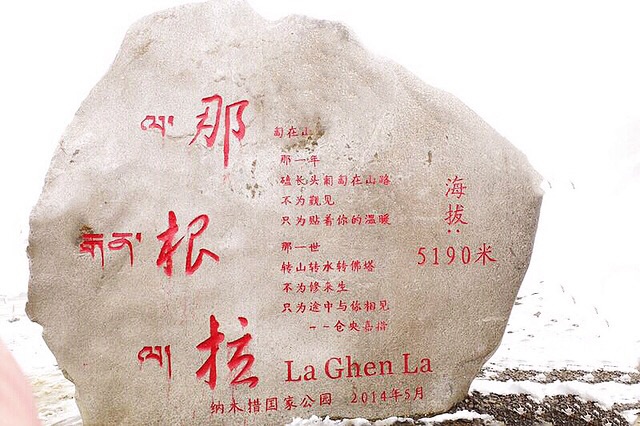 ལ་ 那
གན་ 根
ལ། 拉
匐在山
那一年
磕长头匍匐在山路
不为觐见
只为贴着你的温暖
那一世
转山转水转佛塔
不为修来生
只为途中与你相见
--仓央嘉措
海拔:
5190米
La Ghen La
纳木措国家公园 2014年5月